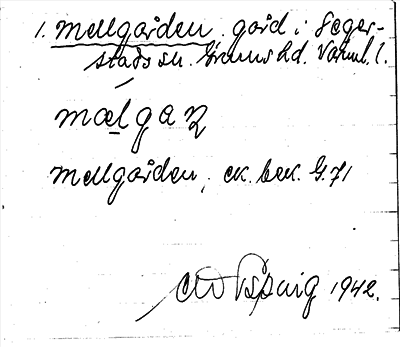 1. Mellgården. gård i Seger-
stads sn. Grums hd. Värml. l.
mælgaɳ
Mellgården, ek. bek. G.71
1942.